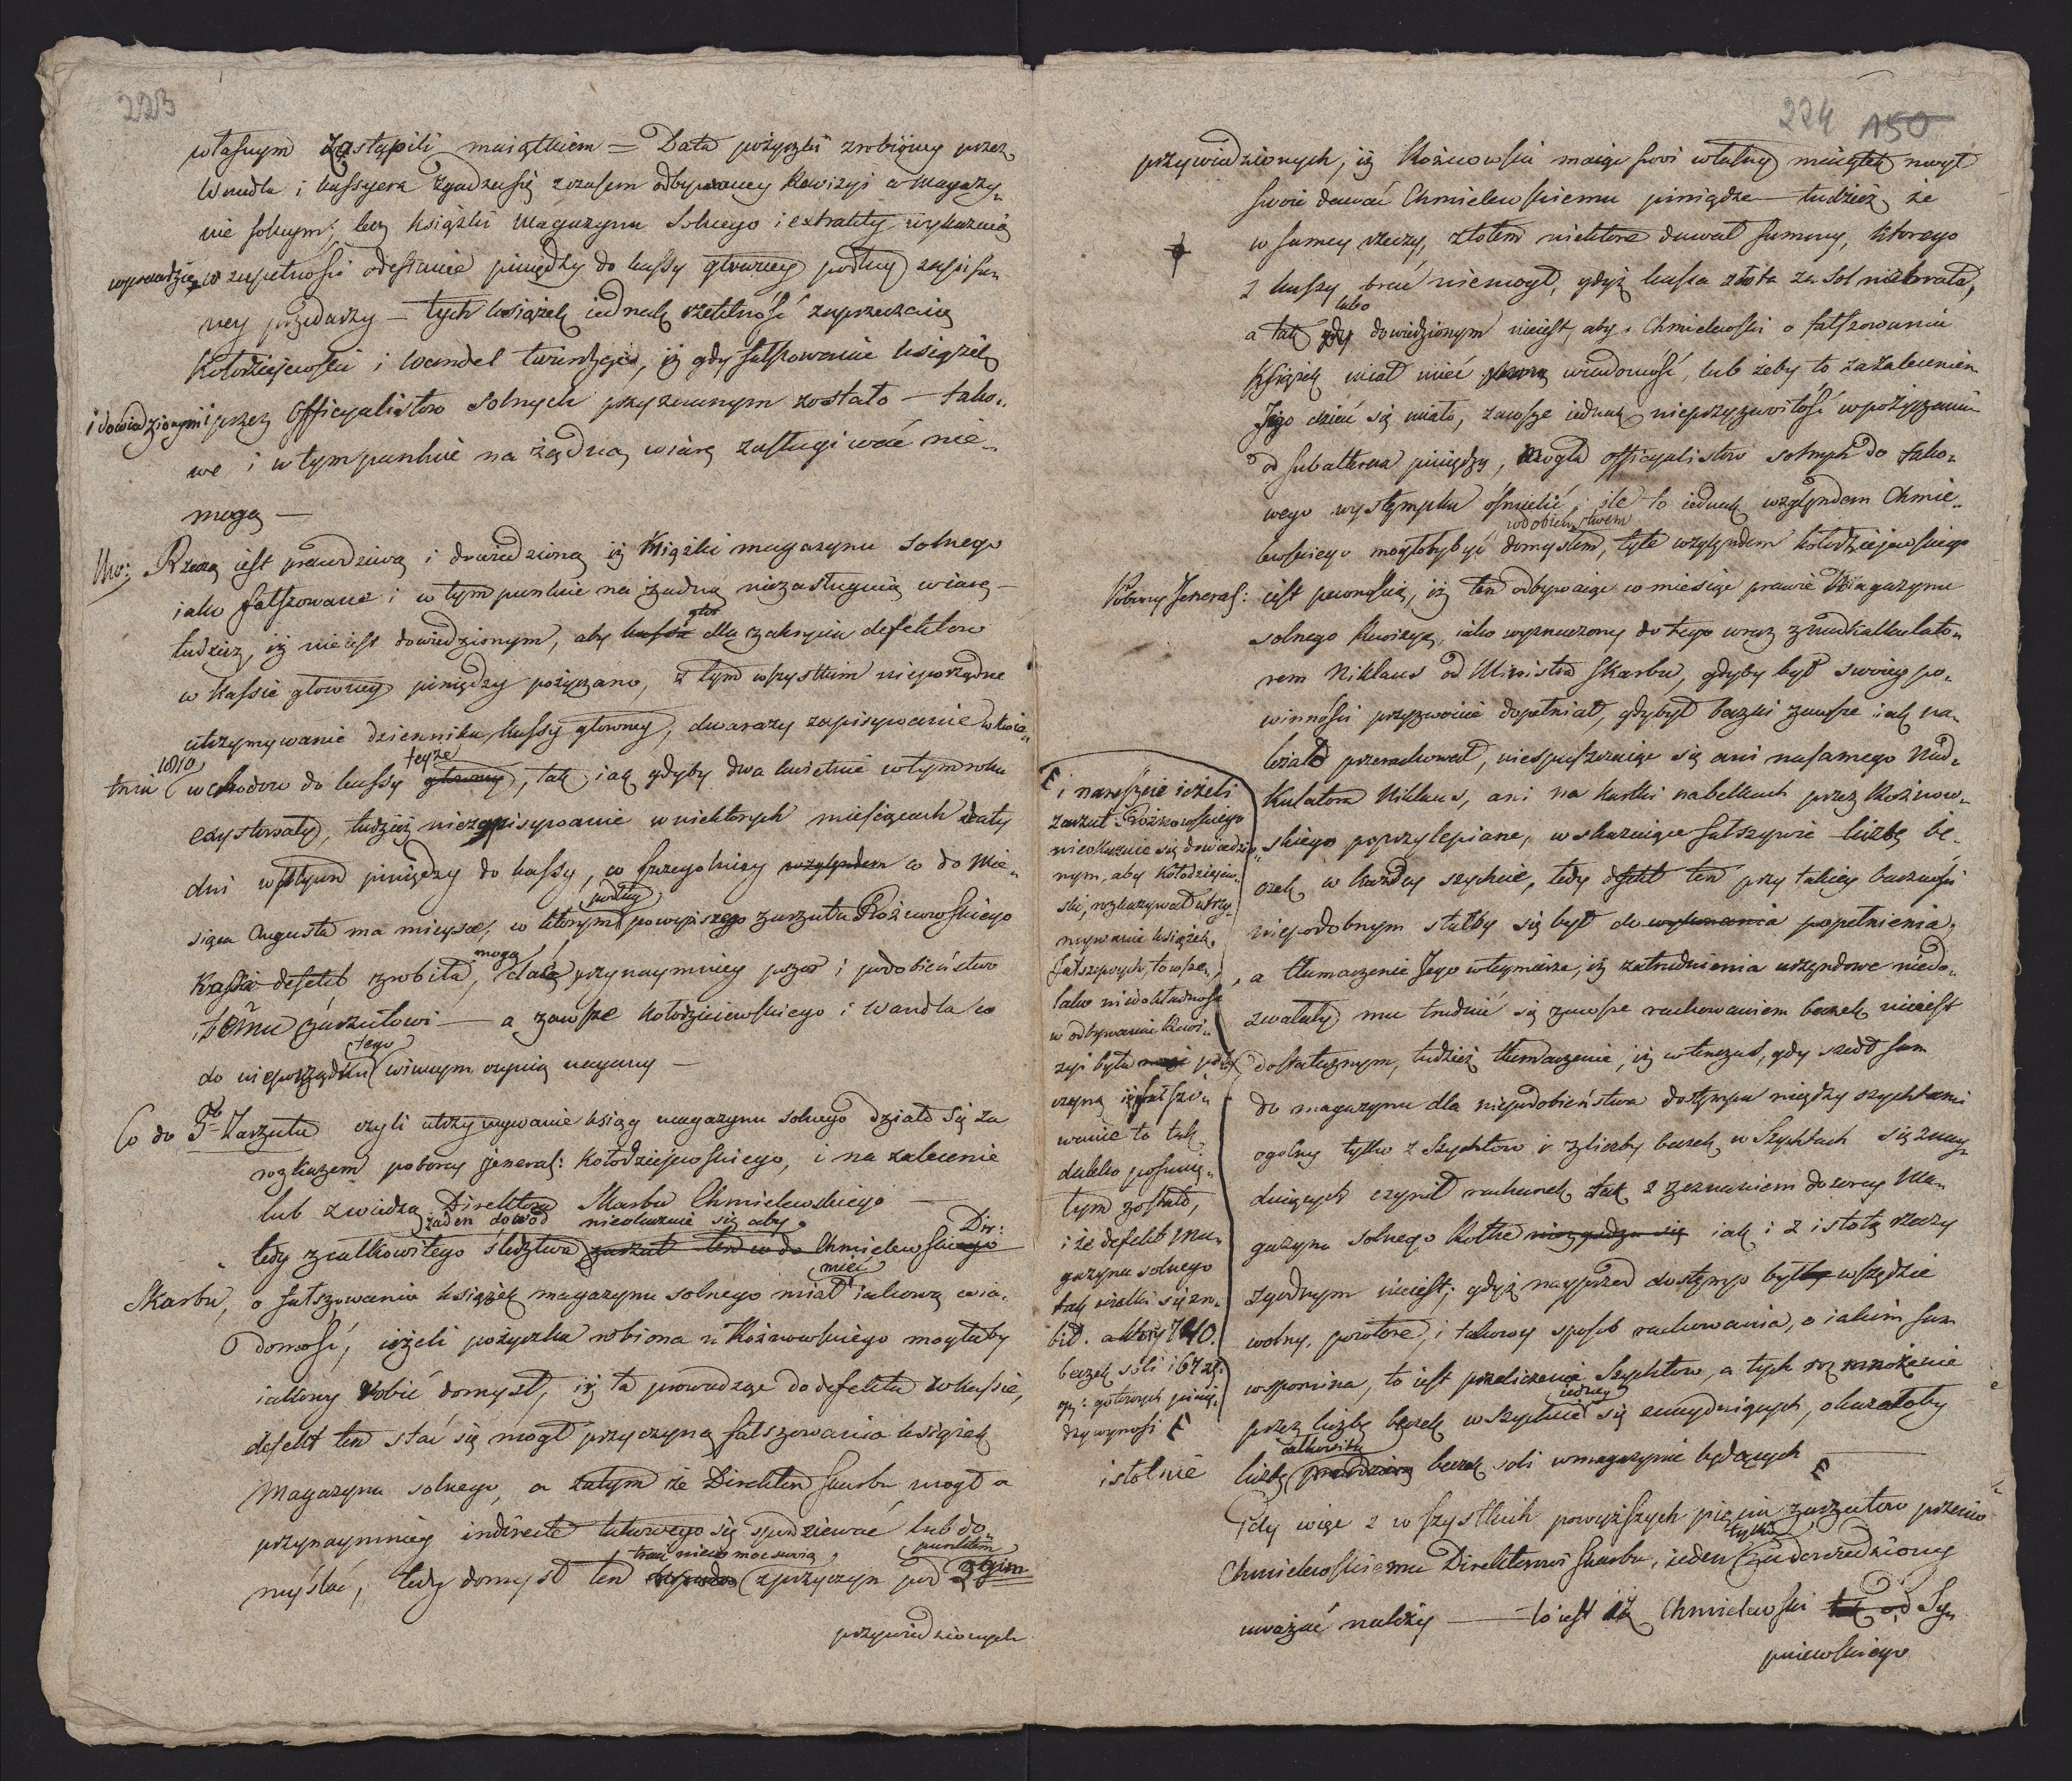 223
własnym zastąpili maiątkiem = Data pożyczki zrobioney przez
Wandla i kassyera zgadza się z czasem odbywaney Rewizyi w Magazy„
nie solnym; lecz książki Magazynu Solnego i extrakty wykazuią
wprawdzie w zupełności odesłanie pieniędzy do kassy głowney podług zapisa„
ney przedarzy — tych książek iednak rzetelność zaprzeczaią
Kołodziejewski i Wandel twierdząc, iż gdy fałszowanie książek
i dowiedzionym przez Officyalistow Solnych przyznanym zostało — tako„
we i w tym punkcie na żadną wiarę zasługiwać nie„
mogą —
Uw: Rzeczą iest prawdziwą i dowiedzioną iż Książki magazynu solnego
iako fałszowane i w tym punkcie na żadną niezasługuią wiarę —
tudzież, iż nie iest dowiedzionym, aby kassa dla zakrycia defektow
w kassie głowney pieniędzy pożyczano, z tym wszystkim nieporządne
utrzymywanie dziennika kassy głowney, dwarazy zapisywanie w kwie„
tniu 1810 wchodow do kassy teyże głowney, tak iak gdyby dwa kwietnie w tym roku
exystowały, tudzież niezapisywanie w niektorych miesiącach daty
dni wpływu pieniędzy do kassy, co szczegolniey względem co do Mie„
siąca Augusta ma mieysce, w ktorym podług powyiszego zarzutu Rożnowskiego
Kassa defekt zrobiła, mogą dać przynaymniey pozor i podobieństwo
temu zarzutowi — a zawsze Kołodzieiewskiego i Wandla co
do nieporządku tego winnym czynią nagany —
Co do 5to Zarzutu czyli utrzymywanie ksiąg magazynu solnego działo się za
rozkazem poborcy Jeneral: Kołodziejewskiego, i na zalecenie
lub z wiedzą Direktora Skarbu Chmielewskiego —
żaden dowod nieokazuie się aby Dir:
tedy z całkowitego śledztwa zarzut ten co do Chmielewskiego
Skarbu, o fałszowaniu książek magazynu solnego miał mieć iakową wia„
domość, ieżeli pożyczka robiona u Rożnowskiego mogłaby
iakowy robić domysł, iż ta prowadząc do defektu w kassie,
defekt ten stać się mogł przyczyną fałszowania książek
Magazynu solnego, a zatym że Direktor Skarbu mogł a
przynaymniey indirecte takowego się spodziewać lub do„
myślać, tedy domysł ten traci nieco moc swoią z przyczyn pod punktem 3cim
przywiedzionych

224 150
przywiedzionych, iż Rożnowski maiąc swoi własny maiątek mogł
swoie dawać Chmielewskiemu pieniądze — tudzież że
w samey rzeczy, złotem niektore dawał summy, ktorego
z kassy brać niemogł, gdyż kassa złota za sol niebrała,
a tak lubo gdy dowiedzionym nieiest, aby Chmielewski o fałszowaniu
Książek miał mieć pewną wiadomość, lub żeby to za zaleceniem
Jego dziać się miało, zawsze iednak nieprzyzwoitość w pożyczaniu
od subalterna pieniędzy, mogła officyalistow solnych do tako„
wego występku ośmielić; ile to iednak względem Chmie„
lewskiego mogłoby być podobieństwem domysłem, tyle względem Kołodziejewskiego
Poborcy Jeneral: iest pewnością, iż ten odbywaiąc co miesiąc prawie Magazynu
solnego Rewizyą, iako wyznaczony do tego wraz z Nadkalkulato„
rem Niklaus od Ministra Skarbu, gdyby był swoiey po„
winności przyzwoicie dopełniał, gdyby był beczki zawsze iak na„
leżało przerachował, niespuszczaiąc się ani na samego Nad„
kulatora Niklaus, ani na kartki na belkach przez Rożnow„
skiego poprzylepiane, wskazuiące fałszywie liczbę be„
czek w każdey szychcie, tedy defekt ten przy takiey baczności
niepodobnym stałby się był do wykonania popełnienia,
a tłumaczenie Jego w tey mierze, iż zatrudnienia urzędowe niedo„
zwalały mu trudnić się zawsze rachowaniem beczek nieiest
dostatecznym, tudzież tłumaczenie, iż wtenczas, gdy szedł sam
do magazynu dla niepodobieństwa dostępu między szychtami
ogolny tylko z Szychtow i z liczby beczek w Szychtach się znay„
duiących czynił rachunek tak z zeznaniem dozorcy Ma„
gazynu Solnego Rothe niezgadza się iak i z istotą rzeczy
zgodnym nieiest; gdyż nayprzod dostęp był wszędzie
wolny, powtore, i takowy sposob rachowania, o iakim sam
wspomina, to iest przeliczenie Szychtow, a tych rozmnożenie
przez liczbę beczek w szychcie iedney się znayduiących, okazałoby
istotnie liczbę całkowitą prawdziwą beczek soli w magazynie będących
i nareszcie ieżeli
zarzut Rożnowskiego
nieokazuie się dowiedzio„
nym, aby Kołodzieiew„
ski, rozkazywał utrzy„
mywanie książek
fałszywych, to wsze„
lako niedokładność
w odbywaniu Rewi„
zyi była
czyną iż fałszo„
wanie to tak
daleko posunię„
tym zostało,
i że defekt Ma„
gazynu solnego
tak wielki się zro„
bił. a ktory 740.
beczek soli i 67 zł:
gotowych pienię„
dzy wynosi
Gdy więc z wszystkich powyższych pięciu zarzutow przeciw
Chmielewskiemu Direktorowi Skarbu, ieden tylko za dowiedziony
uważać należy — to iest iż Chmielewski tak od Sy„
pniewskiego